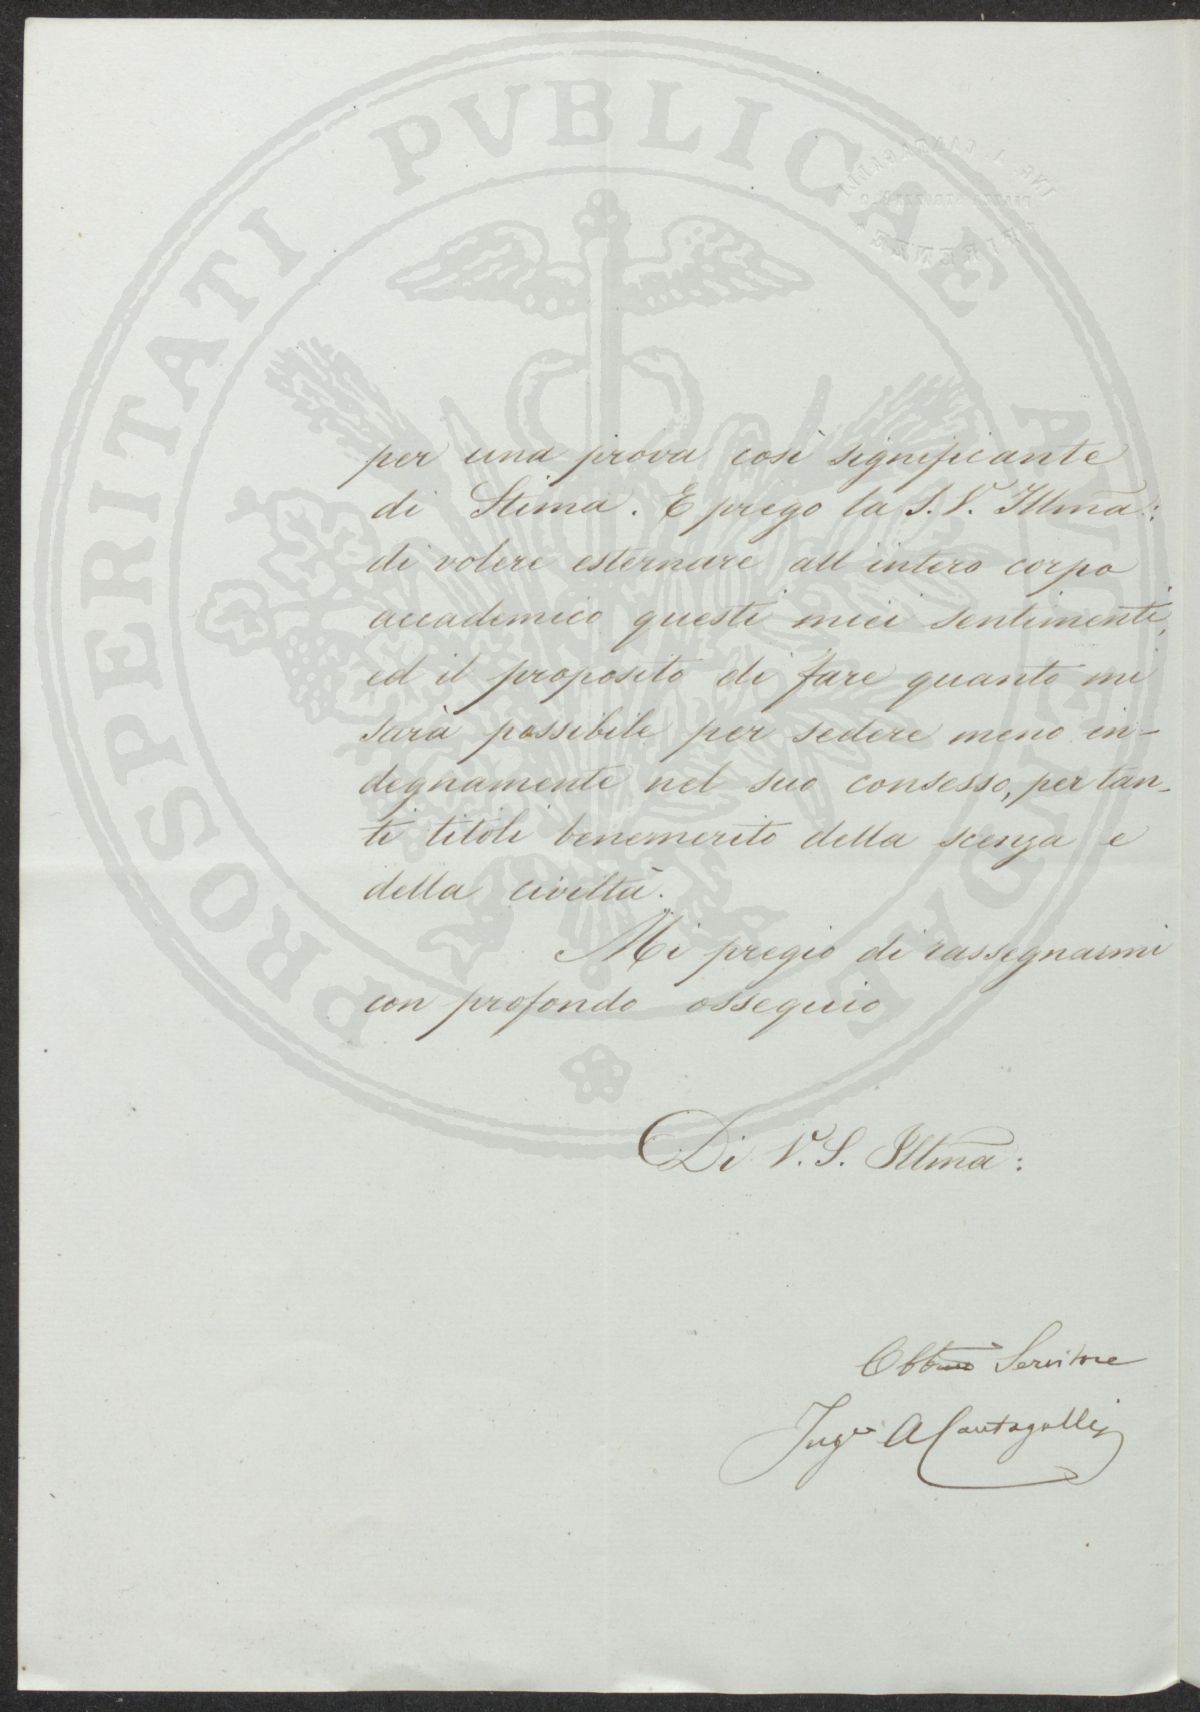 PROSPERITATI PUBLICAE AUGENDAE
ING. A. CANTAGALLI
FIRENZE
per una prova così significante
di Stima. E prego la S. V. Illma:
di volere esternare all'intero corpo
accademico questi miei sentimenti,
ed il proposito di fare quanto mi
sarà possibile per sedere meno in-
degnamente nel suo consesso, per tan-
ti titoli benemerito della scenza e
della civiltà.
Mi pregio di rassegnarmi
con profondo ossequio
Di V. S. Illma:
Obbmo Servitore
Inge A Cantagalli